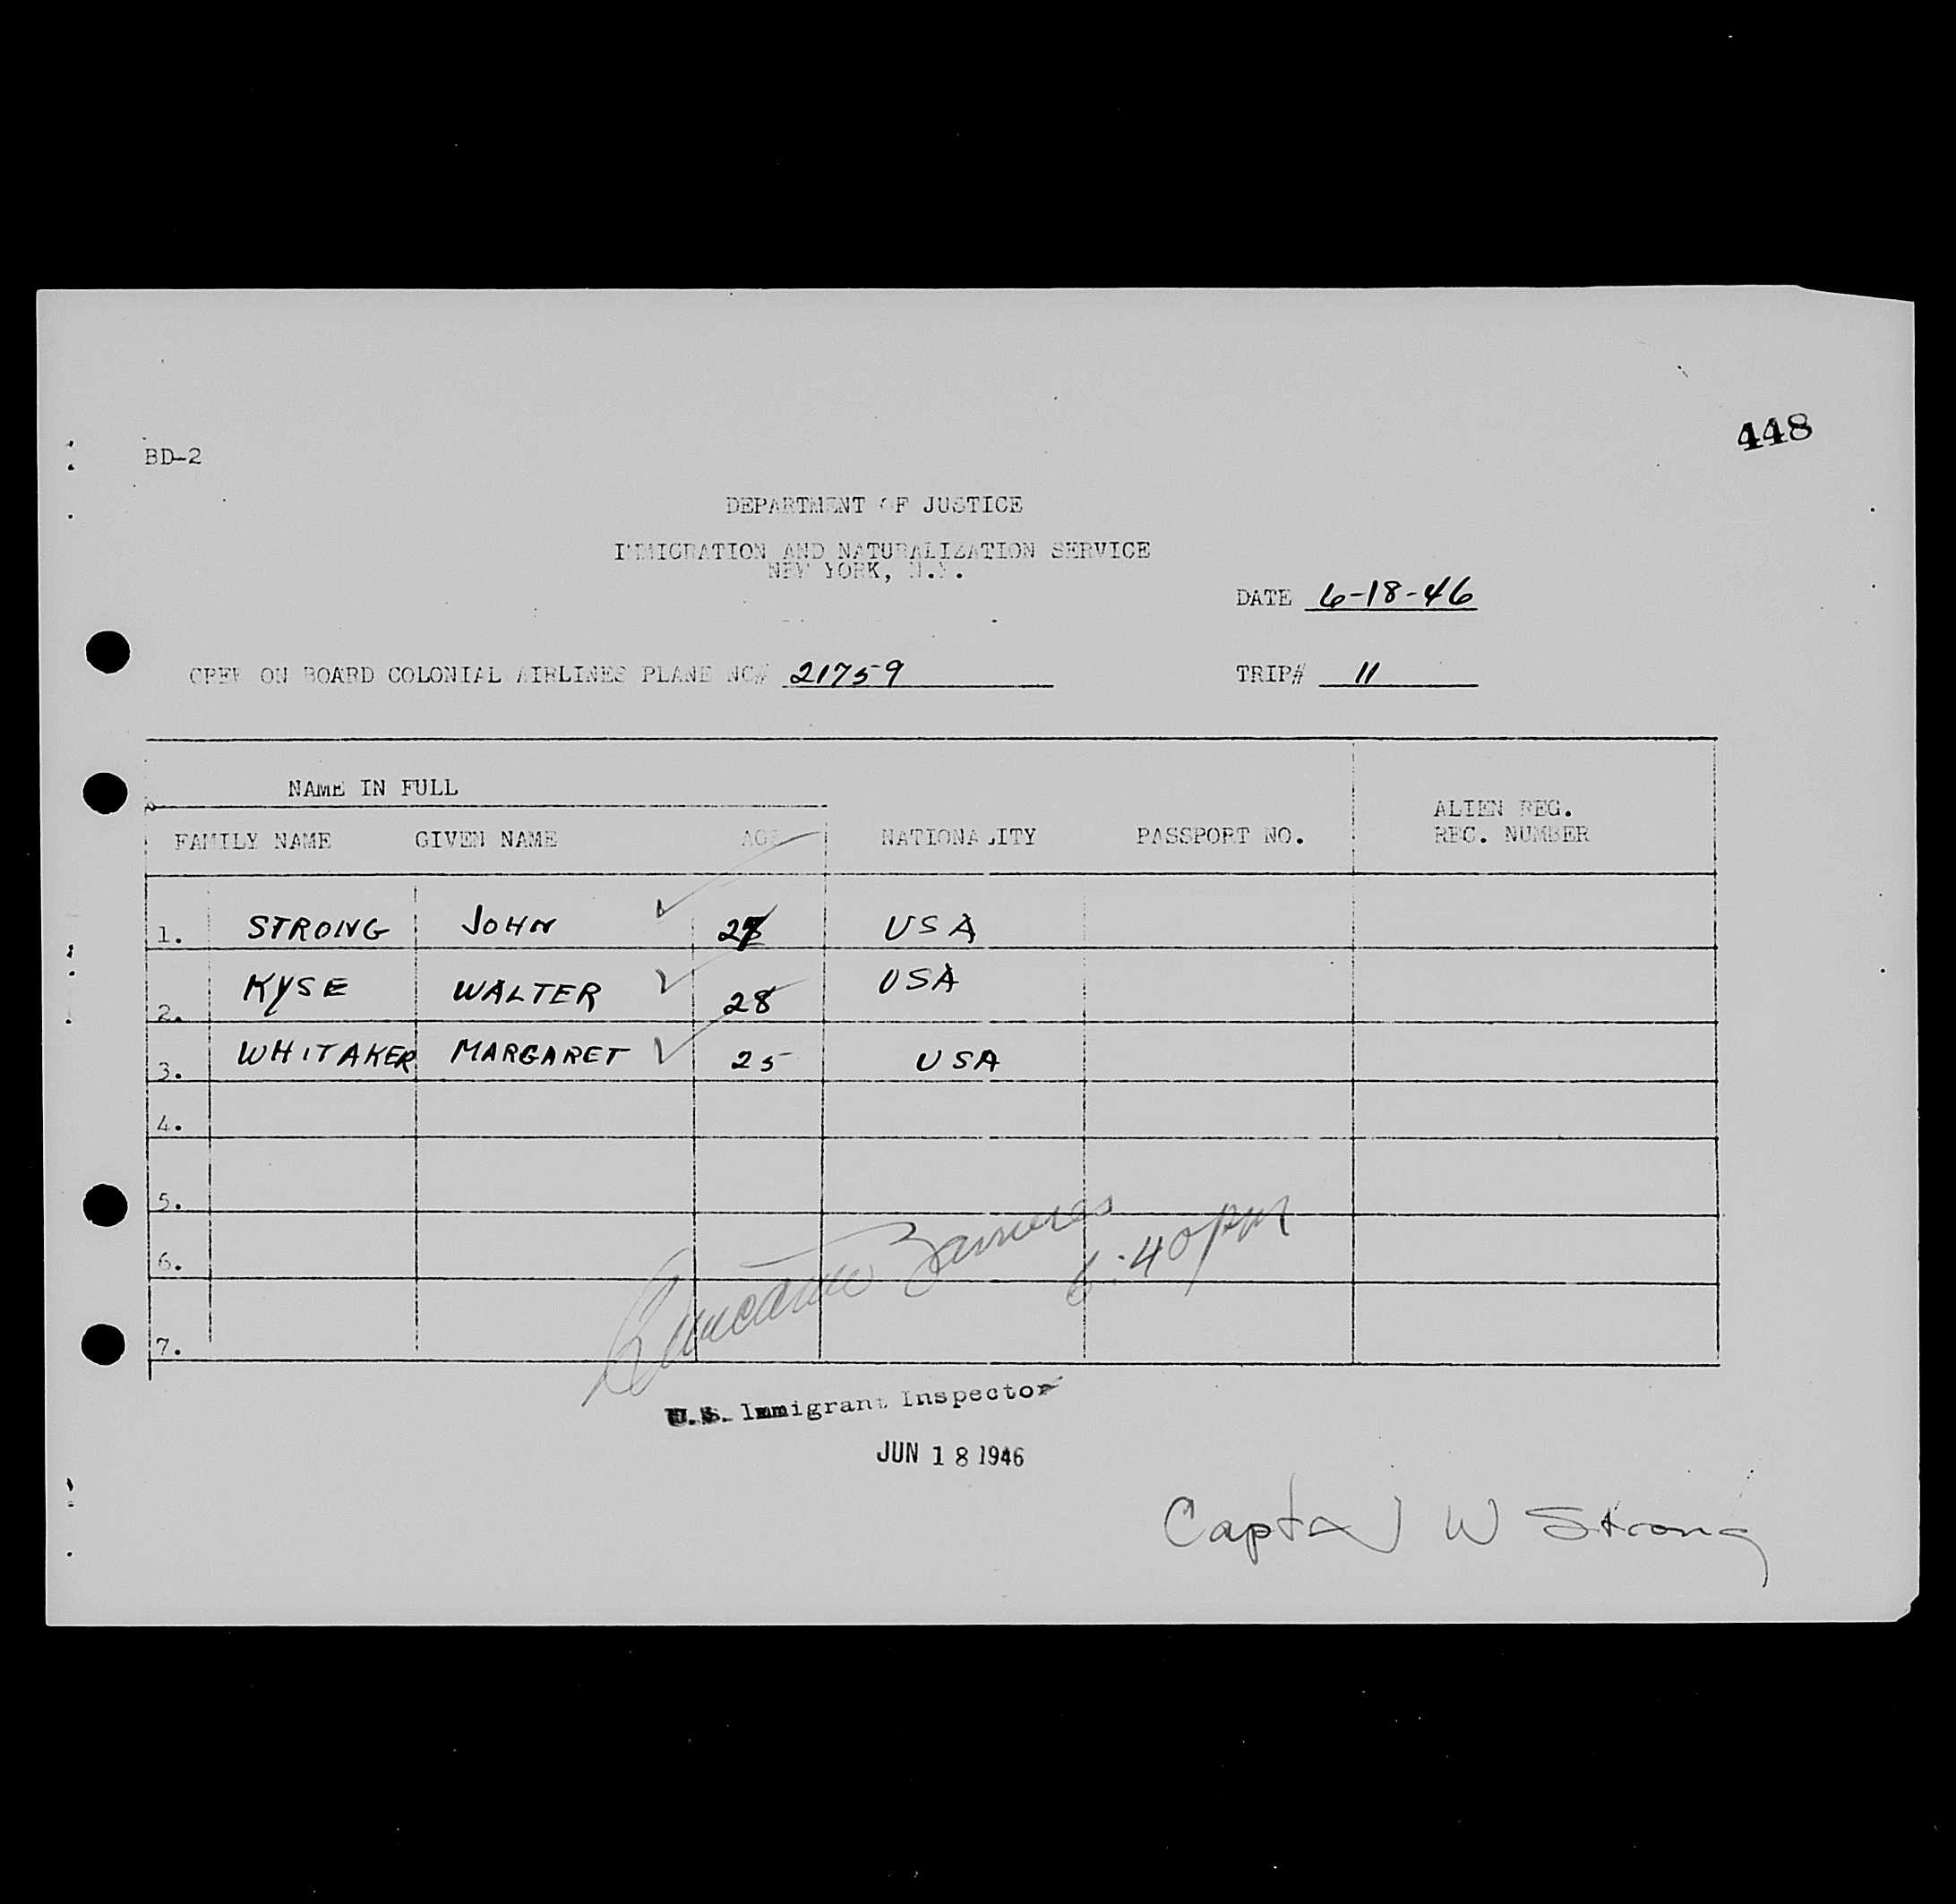 448
BD-2
DEPARTMENT OF JUSTICE
IMMIGRATION AND NATURALIZATION SERVICE
NEW YORK, N.Y.
DATE 6-18-46
CREW ON BOARD COLONIAL AIRLINES PLANE NC# 21759 TRIP# 11
NAME IN FULL
ALIEN REG.
FAMILY NAME GIVEN NAME AGE NATIONALITY PASSPORT NO. REC. NUMBER
1. STRONG JOHN USA
2. KYSE WALTER 28 USA
3. WHITAKER MARGARET 25 USA
4.
5.
6.
7.
6:40pm
U.S. Immigrant Inspector
JUN 18 1946
Capt J W Strong